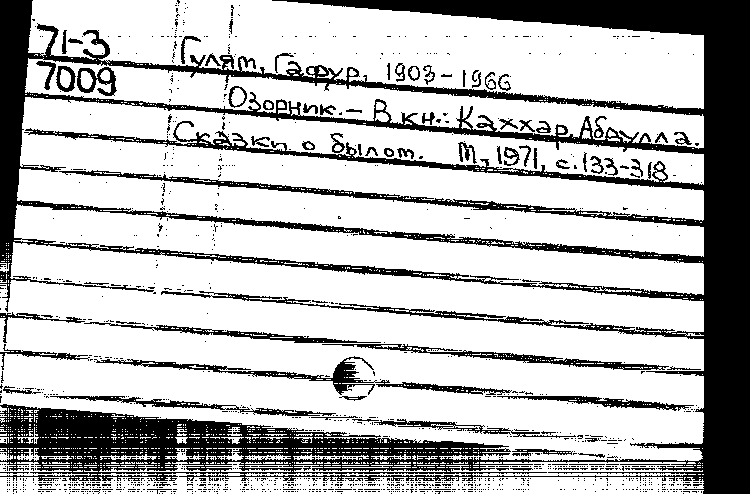 71-3
7009
Гулям, Гафур, 1903-1966
Озорник. - В кн.: Каххар, Абдулла.
Сказки о былом. М., 1971, с. 133-318.